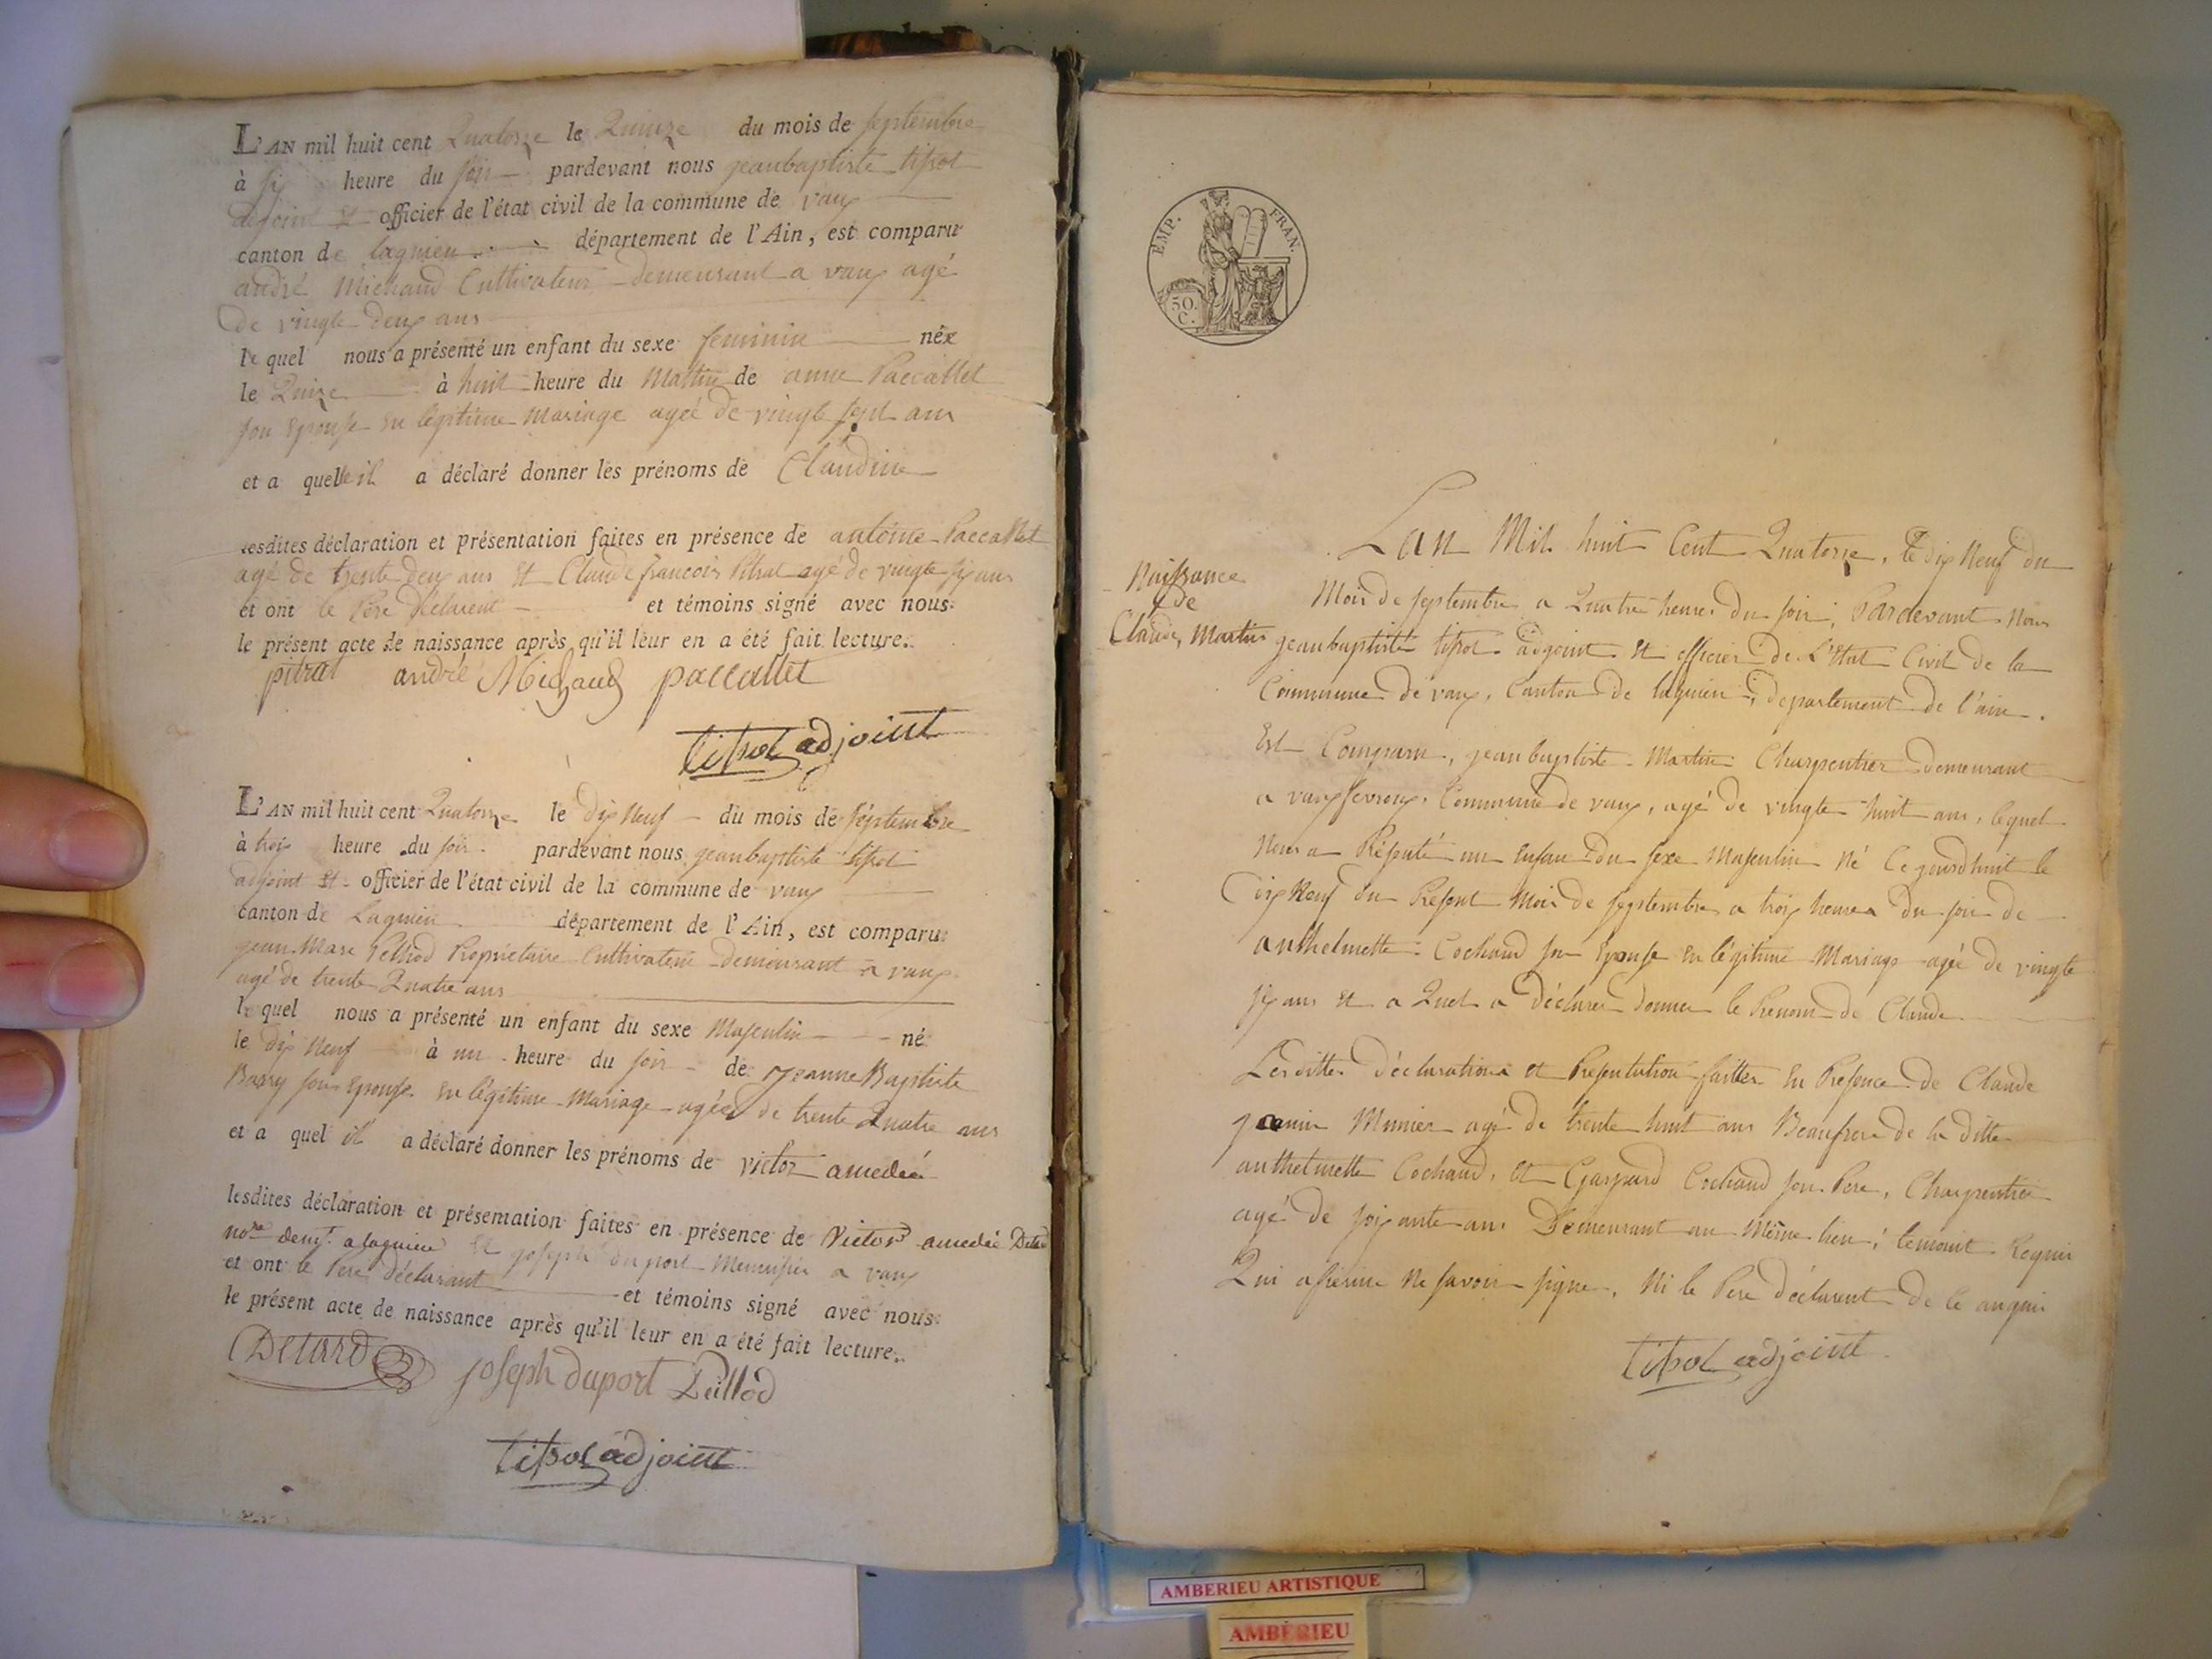 L'AN mil huit cent Quatorze le Quinze du mois de septembre
à six heure du soir pardevant nous jeanbaptiste tissot
adjoint et officier de l'état civil de la commune de vaux
canton de lagnieu département de l'Ain, est comparu
andré Michaud Cultivateur demeurant a vaux agé
de vingte deux ans
le quel nous a présenté un enfant du sexe feminin née
le Quinze à huit heure du Mattin de anne Paccallet
son Epouse en légitime Mariage ageé de vingte sept ans
et a quelle il a déclaré donner les prénoms de Claudine
lesdites déclaration et présentation faites en présence de antoine Paccallet
agé de trente deux ans Et Claude francois Pitrat agé de vingte six ans
et ont le Pere déclarent et témoins signé avec nous
le présent acte de naissance après qu'il leur en a été fait lecture.
pitrat andré Michaud paccallet
tissot adjoint
L'AN mil huit cent Quatorze le dix Neuf du mois de septembre
à trois heure du soir pardevant nous jeanbaptiste tissot
adjoint Et officier de l'état civil de la commune de vaux
canton de Lagnieu département de l'Ain, est comparu
jean Marc Peillod Propriétaire Cultivateur demeurant a vaux
agé de trente Quatre ans
le quel nous a présenté un enfant du sexe Masculin né
le dix Neuf à un heure du soir de jeanne Baptiste
Barry son Epouse en légitime Mariage agée de trente Quatre ans
et a quel il a déclaré donner les prénoms de victor amedeé
lesdites déclaration et présentation faites en présence de Victor amedeé Detard
no.re dem.t a lagnieu Et joseph duport Menuisier a vaux
et ont le Pere déclarant et témoins signé avec nous
le présent acte de naissance après qu'il leur en a été fait lecture.
Detard joseph duport Peillod
tissot adjoint
EMP. FRAN.
50. C.
Naissance
de
Claude, Martin
Lan Mil huit Cent Quatorze, le dix Neuf du
Mois de septembre a Quatre heures du soir, Pardevant Nous
jeanbaptiste tissot adjoint Et officier de L'Etat Civil de la
Commune de vaux, Canton de lagnieu, departement de l'ain.
Est Comparu, jeanbaptiste Martin Charpentier demeurant
a vaux fevroux, Commune de vaux, agé de vingte huit ans, lequel
Nous a Présenté un Enfant du sexe Masculin Né Cejourdhuit le
dix Neuf du Présent Mois de septembre a trois heures du soir de
anthelmette Cochaud son Epouse en légitime Mariage agée de vingte
six ans Et a Quel a déclarer donner le Prenom de Claude
Lesdittes déclarations et Présentation faittes En Présence de Claude
janin Munier agé de trente huit ans Beaufrere de la ditte
anthelmette Cochaud, Et Gaspard Cochaud son Pere, Charpentier
agé de soixante ans Demeurant au Même lieu, temoint Requis
Qui afirme Ne savoir signer, Ni le Pere déclarent de Ce anquis
tissot adjoint
AMBERIEU ARTISTIQUE
AMBÉRIEU